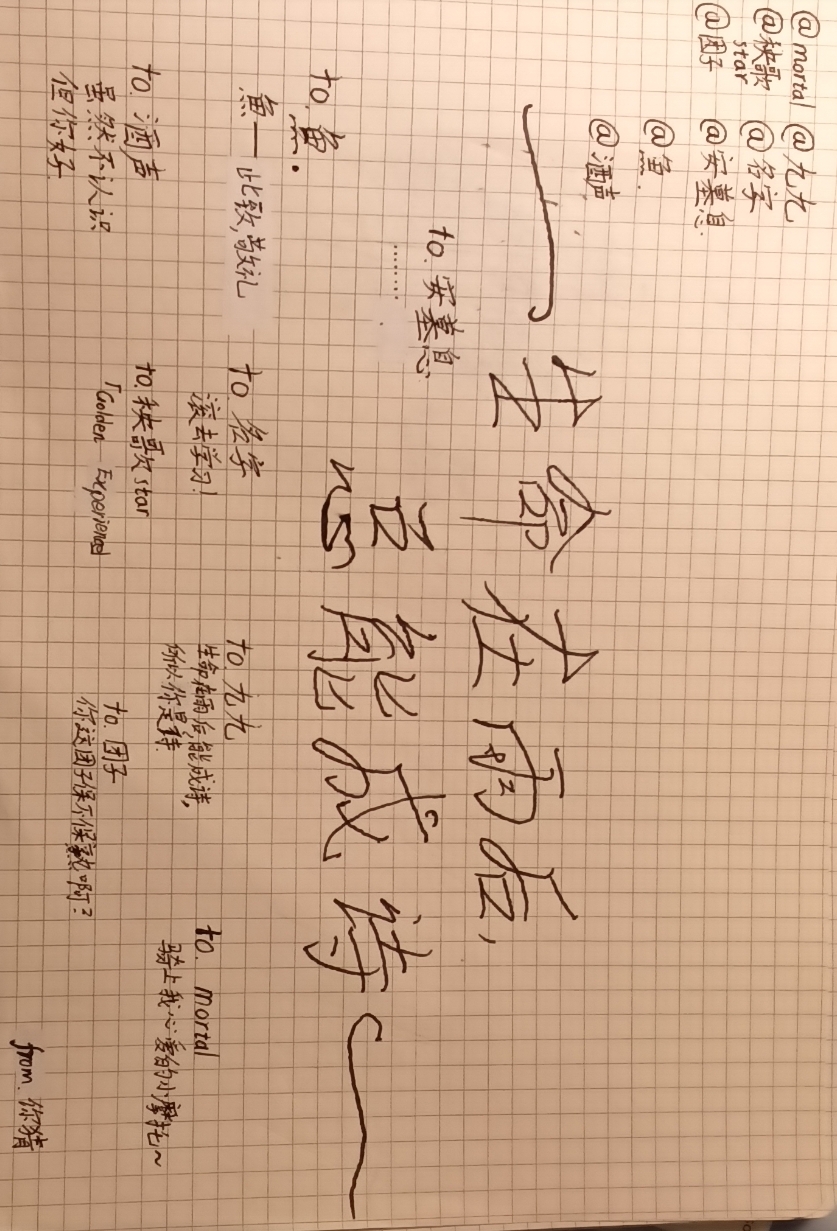 @mortal @九九
@秧歌star @名字
@团子 @安慕息
@鱼.
@酒声
生命在雨后,
总能成诗
to. 安慕息
………
to. 鱼.
鱼—此致,敬礼
to 名字
滚去学习!
to. 九九
生命在雨后,能成诗,
所以你是诗.
to. mortal
骑上我心爱的小摩托~
to. 酒声
虽然不认识
但你好
to. 秧歌star
「Golden Experience」
to. 团子
你这团子保不保熟啊?
from. 你猜